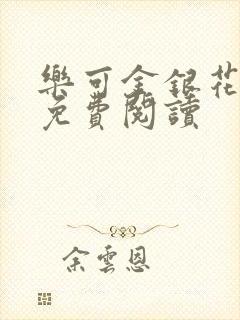 樂可金銀花
免費閱讀
余雲恩